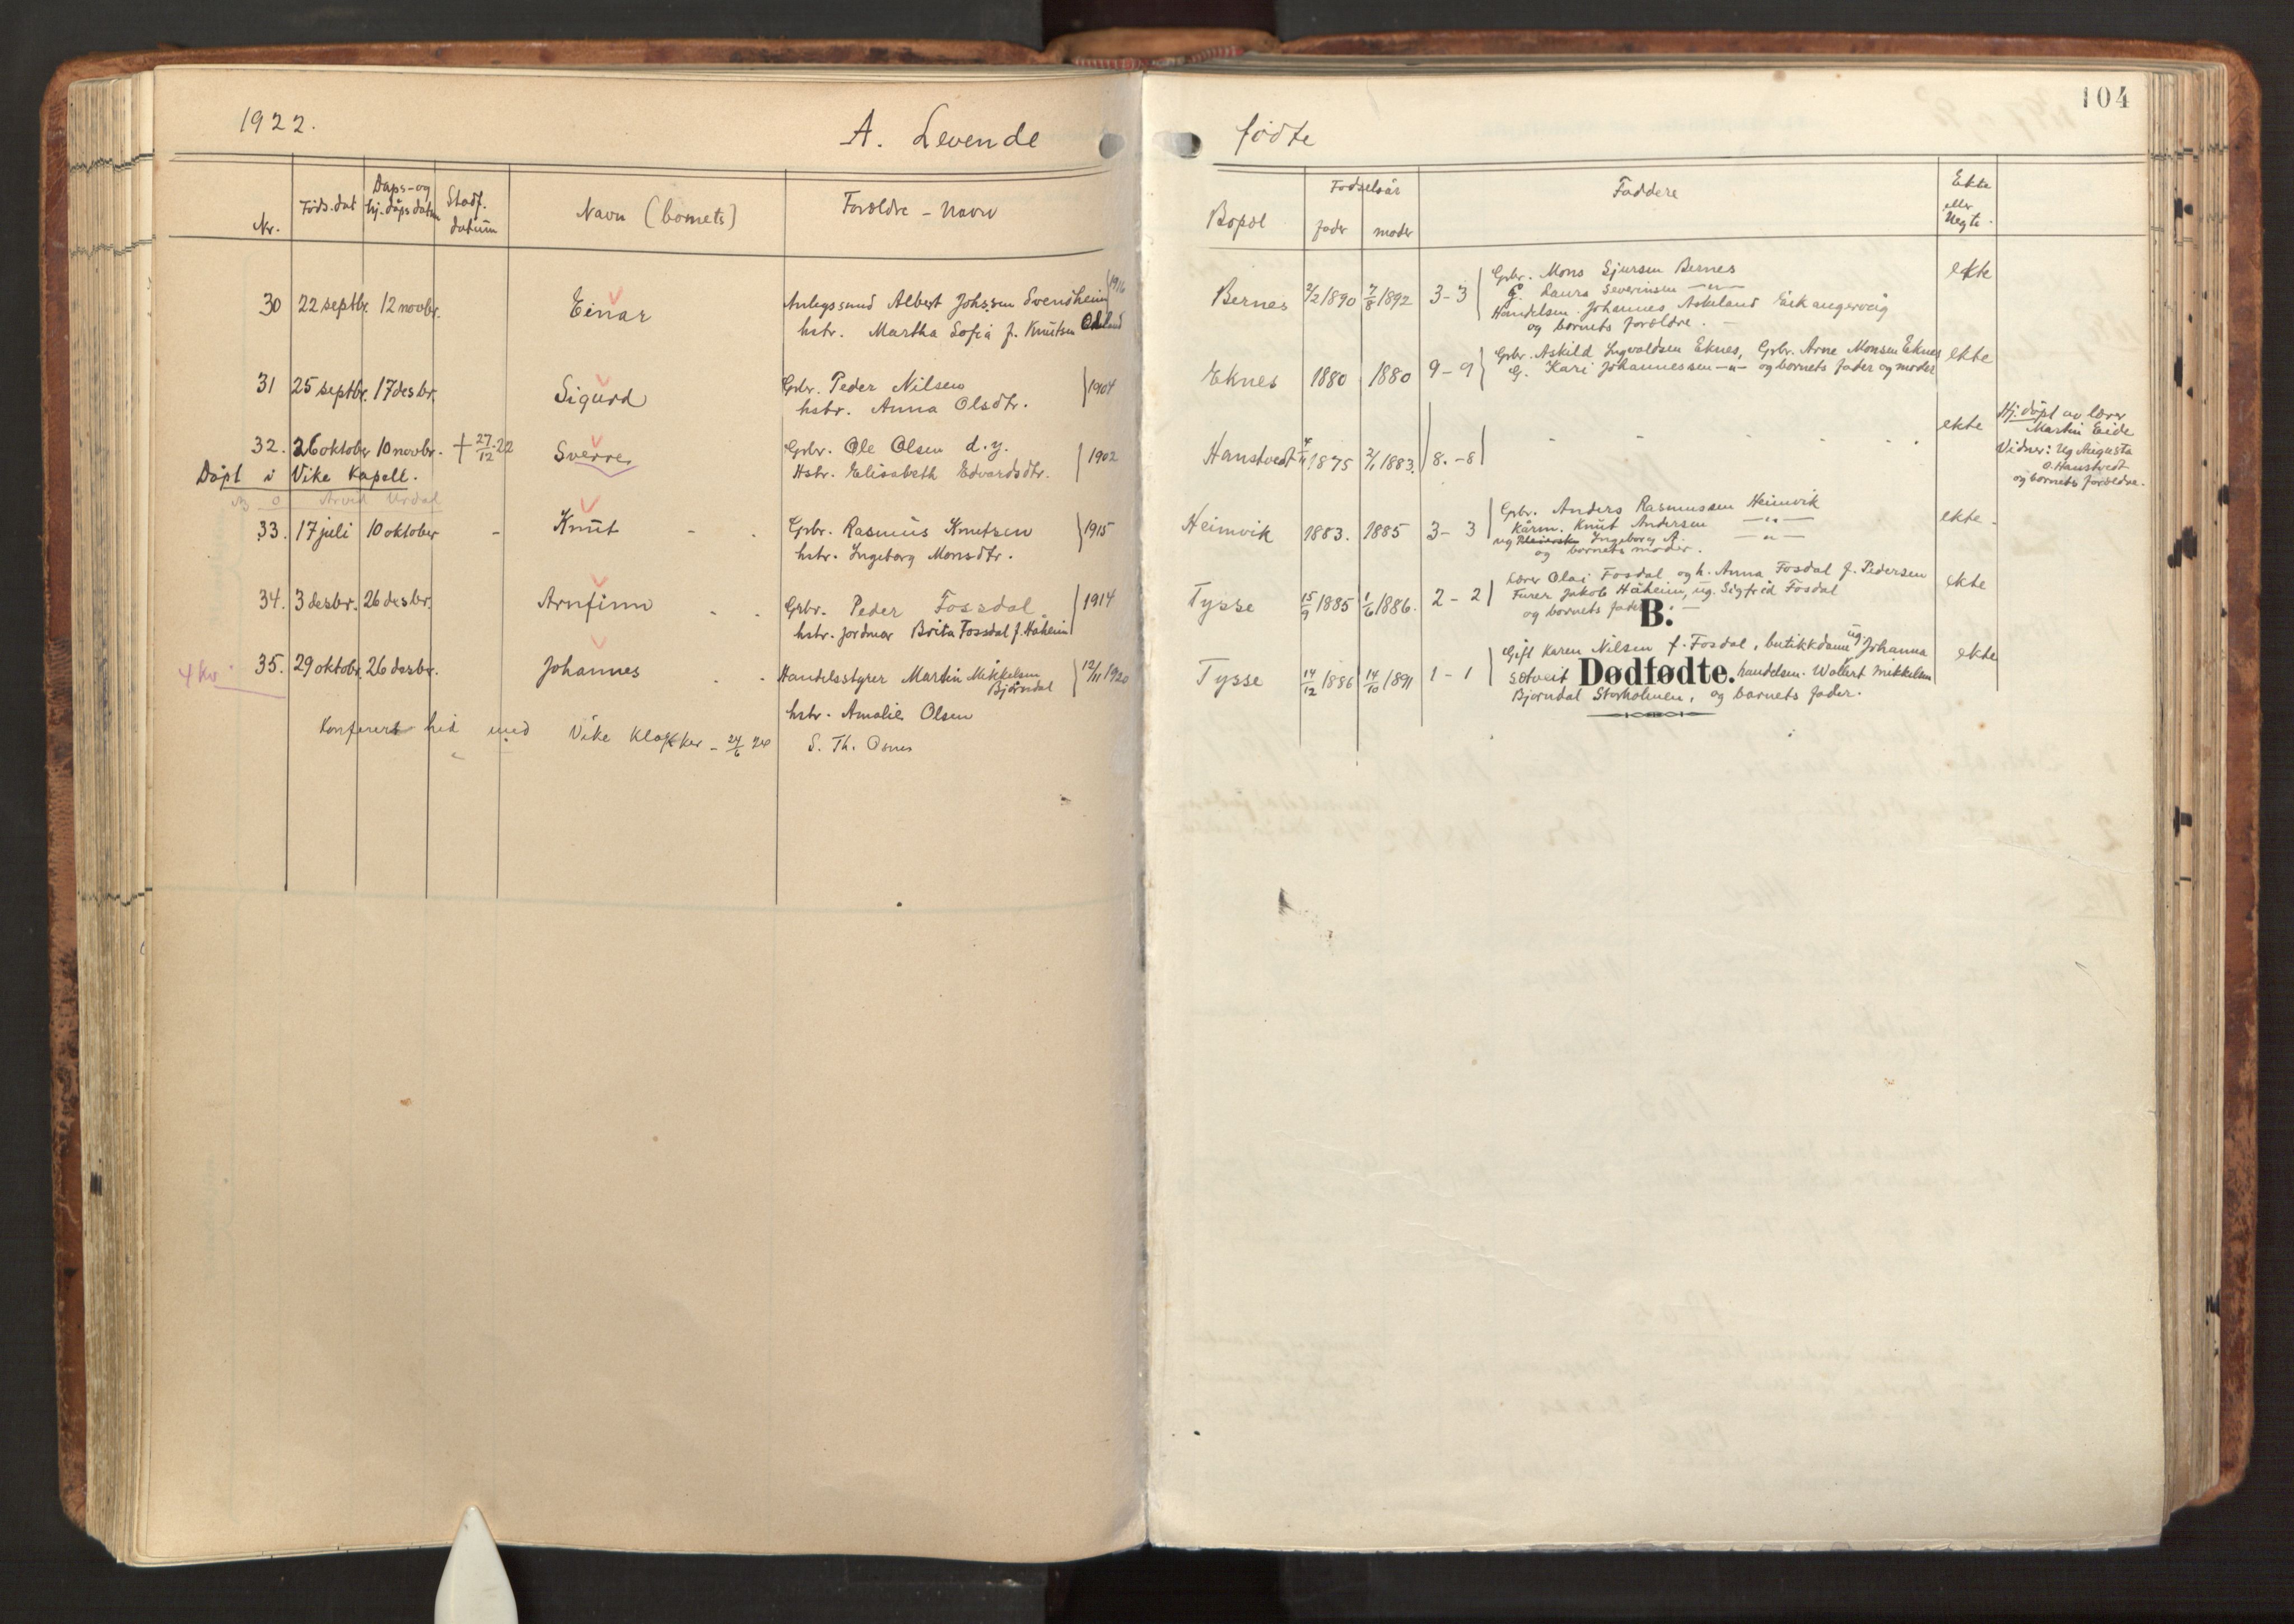 1922.
A. Levende
Nr.
Föds.dat
Daps-og
hj.döps datum
Stadf.
datum
Navn (barnets)
Foreldre - Navn
30
22 septbr.
12 novbr.
Einar
Anlegssmd Albert Johssen Svendheim
1916
hstr. Martha Sofia f. Knutsen
31
25 septbr.
17 desbr.
Sigurd
Gbr. Peder Nilsen
hstr. Anna Olsdtr.
1904
32.
26 oktober
10 novbr.
† 27/12 22
Sverre
Gbr. Ole Olsen d.y.
Hstr. Elisabeth Edvardsdtr.
1902
Döpt i Vike Kapell.
33.
17 juli
10 oktober
-
Knut
Gbr. Rasmus Knutsen
hstr. Ingeborg Monsdtr.
1915
34.
3 desbr.
26 desbr.
Arnfinn
Gbr. Peder Fossdal
hstr. jordmor Brita Fossdal f. Håheim
1914
35.
29 oktobr.
26 desbr.
Johannes
Handelsstyrer Martin Mikkelsen
Bjørndal
hstr. Amalie Olsen
12/11 1920
Konferert hid med Vike klokker - 24/6 24 S. Th. Osnes
104
födte
Bopel
Fodselsår
fader
moder
Faddere
Ekte
eller
Uegte.
Bernes
2/2 1890
7/8 1892
3-3
Gbr. Mons Sjursen Bernes
G. Laura Severinsen -"-
Handelsm. Johannes Askeland Eikangervåg
og barnets foreldre.
ekte
Eknes
1880
1880
9-9
Gbr. Askild Ingvaldsen Eknes, Gbr. Arne Monsen Eknes
G. Kari Johannessen -"- og barnets fader og moder
ekte
Hanstvedt
1875
2/1 1883.
8.-8
ekte
Hj. döpt av lærer
Martin Eide
Vidner: Ug Augusta
O. Hanstvedt
og barnets foreldre.
Heimvik
1883.
1885
3-3
Gbr. Anders Rasmussen Heimvik
Kårm. Knut Andersen -"-
ug Ingeborg A. -"-
og barnets moder.
ekte.
Tysse
15/9 1885
1/6 1886.
2-2
Lærer Olai Fosdal og h. Anna Fosdal f. Pedersen
Furer Jakob Håheim, ug. Sigfrid Fosdal
og barnets fader.
ekte
B.
Tysse
14/12 1886
14/10 1891
1-1
Gift Karen Nilsen f. Fosdal, butikkdame ug. Johanna
Sætveit
Dødfødte.
handelsm. Wollert Mikkelsen
Bjørndal Storholmen, og barnets fader.
ekte